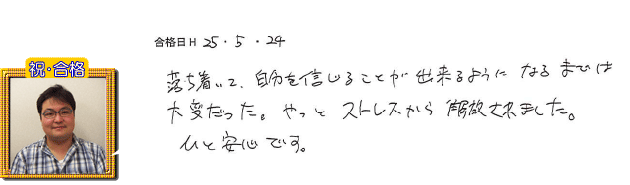 合格日H 25・5・24
祝・合格
落ち着いて、自分を信じることが出来るようになるまでは
大変だった。やっとストレスから解放されました。
ひと安心です。